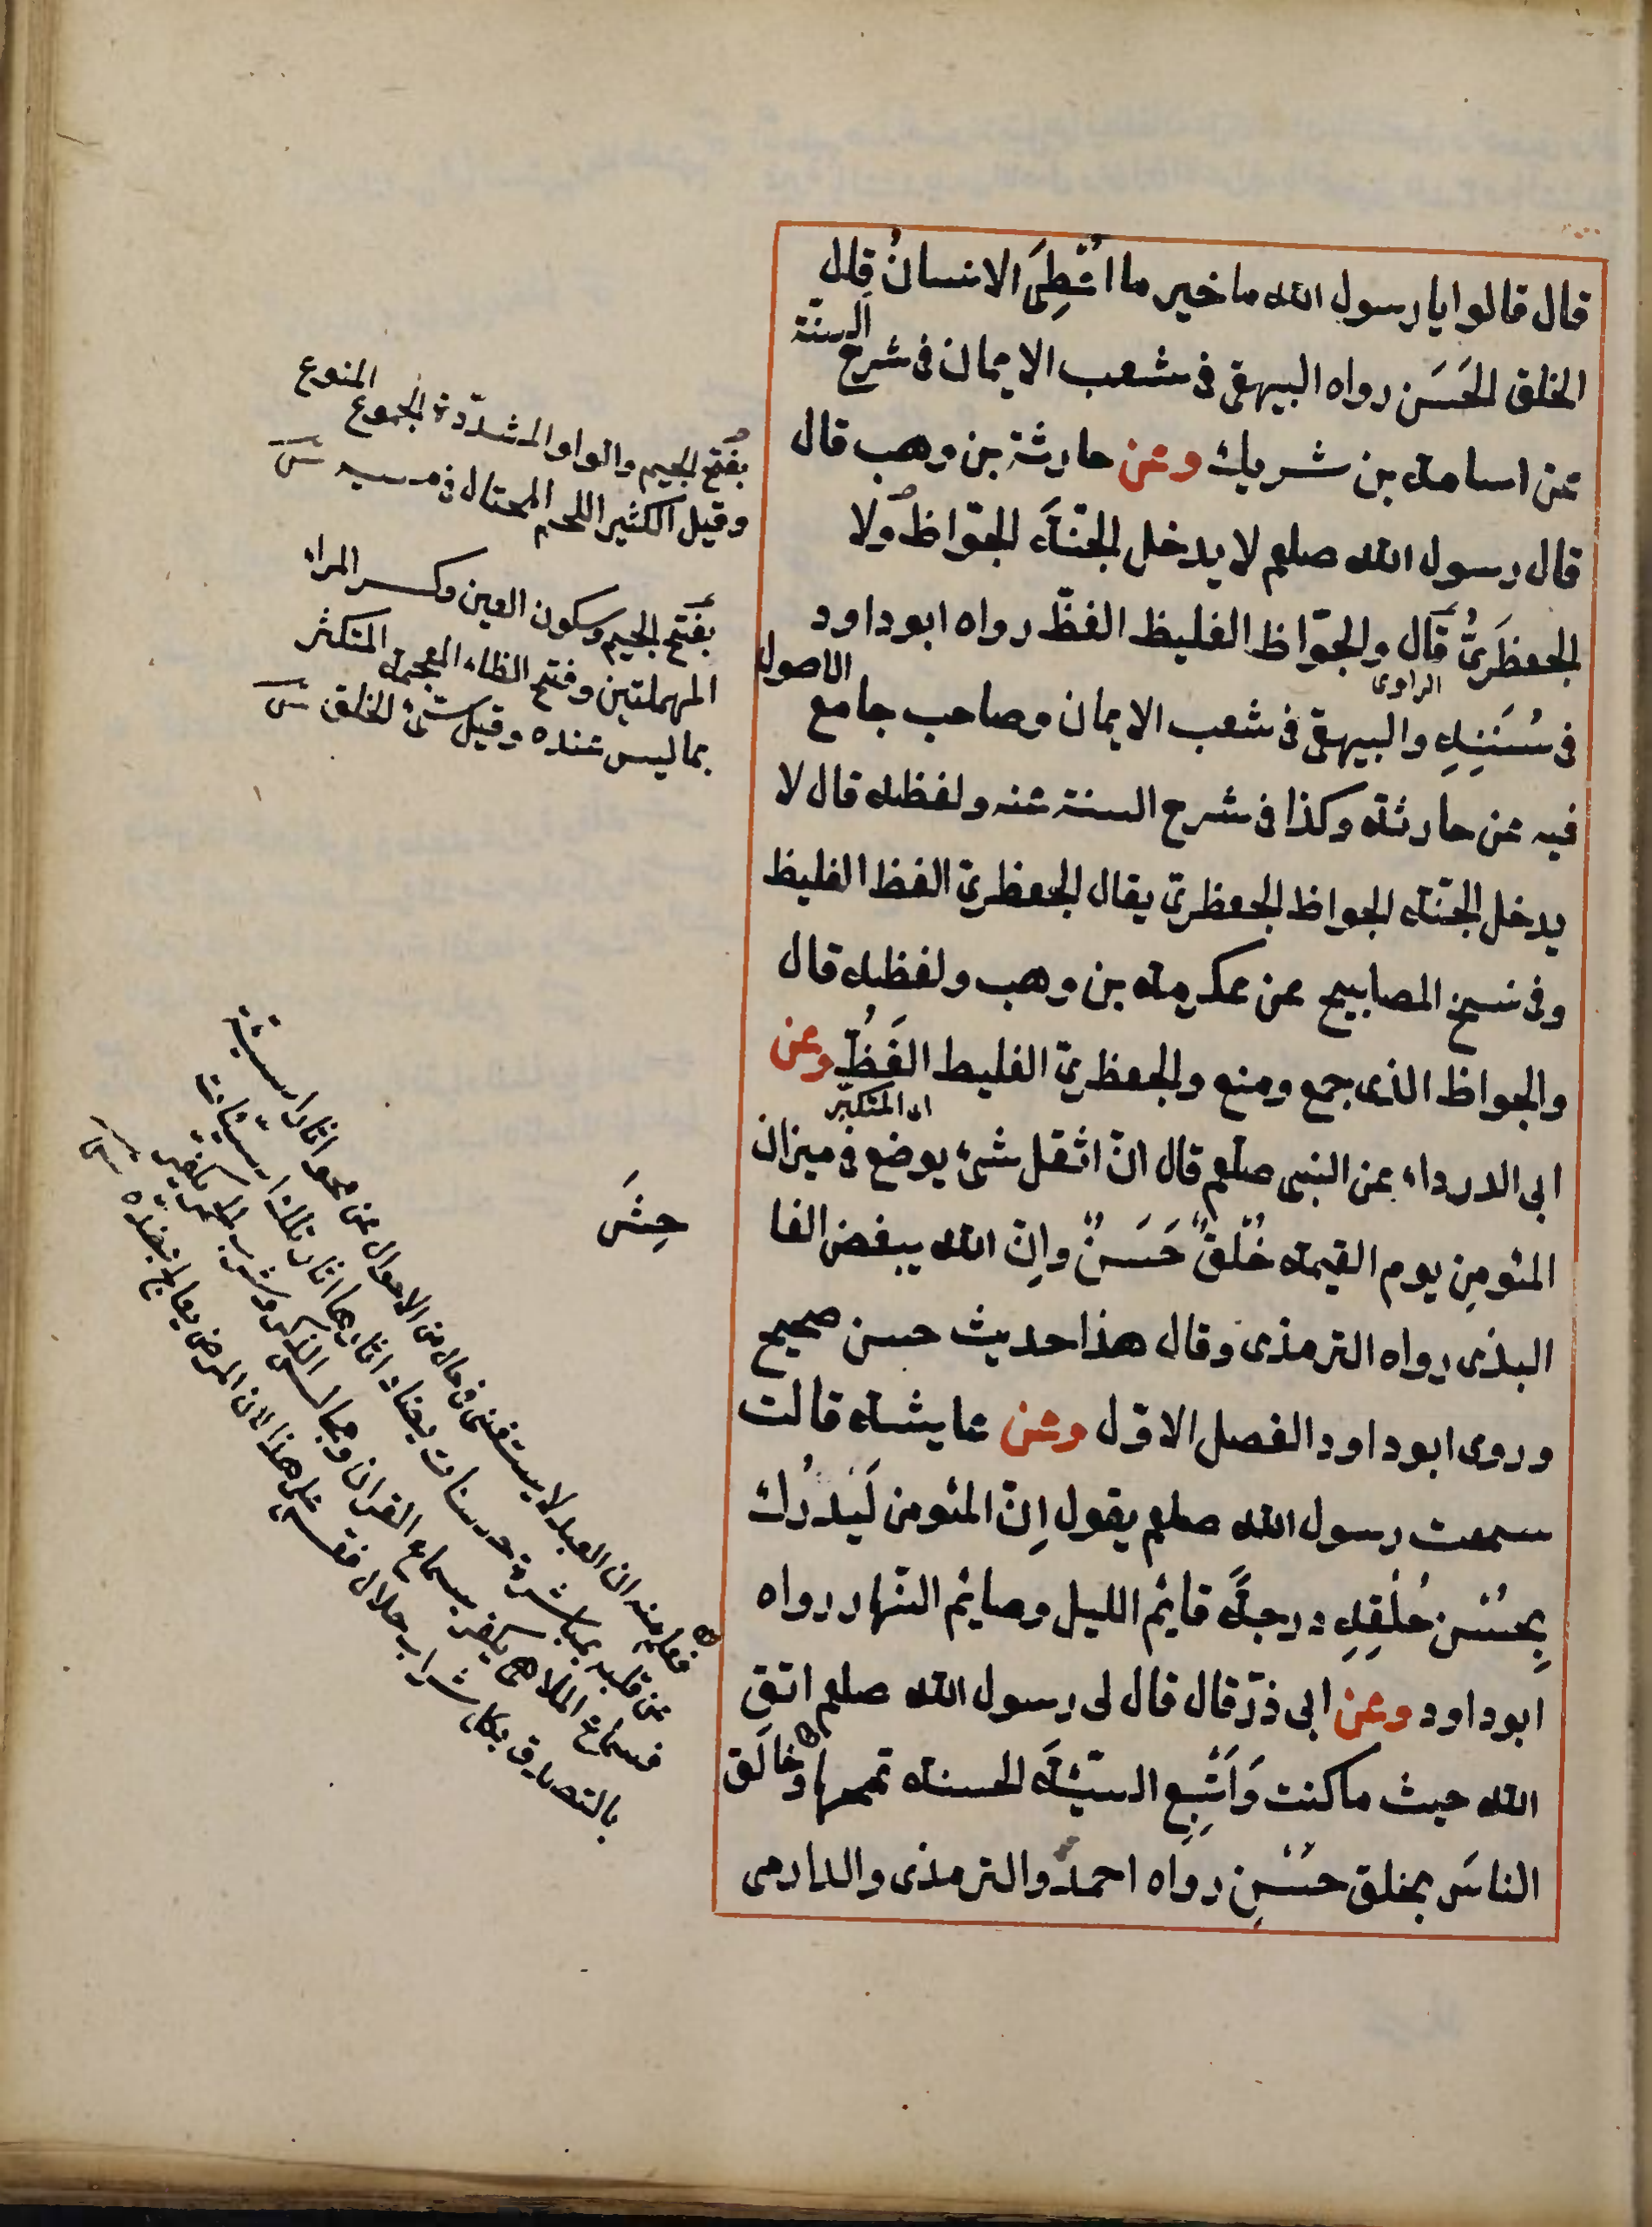 قال قالوا يا رسول الله ما خير ما اُعْطِىَ الانسانُ قال
الخلق الحَسَن رواه البيهقى فى شعب الايمان فى شرح السنة
عن اسامة بن شريك وعن حارثة بن وهب قال
قال رسول الله صلعم لا يدخل الجنّة الجوّاظ ولا
الجعظَرىُّ قال والجوّاظ الغليظ الفظّ رواه ابو داود
الراوى
فى سُنَنِهِ والبيهقى فى شعب الايمان وصاحب جامع الاصول
فيه عن حارثة وكذا فى شرح السنة عنه ولفظه قال لا
يدخل الجنّة الجواظ الجعظرىّ يقال الجعظرىّ الفظ الغليظ
وفى نسخ المصابيح عن عكرمة بن وهب ولفظه قال
والجواظ الذى جمع ومنع والجعظرىّ الغليط الفَظُّ وعن
اى المتكبّر
ابى الدرداء عن النبى صلعم قال انّ اثقل شىء يوضع فى ميزان
المئومِن يوم القيمة خُلُقٌ حَسَنٌ وانّ الله يبغض الفا
البذى رواه الترمذى وقال هذا حديث حسن صحيح
وروى ابو داود الفصل الاوّل وعن عايشة قالت
سمعت رسول الله صلعم يقول اِنّ المئومن لَيُدْرُك
بِحُسْن خُلُقِهِ درجةَ قائِم الليل وصائِم النّهار رواه
ابو داود وعن ابى ذرّ قال قال لى رسول الله صلعم اتقِ
الله حيث ما كنت وَاَتْبِعِ السيّئةَ الحسنة تمحها وخالَق
الناسَ بخلق حَسَنٍ رواه احمد والترمذى والدارمى
بفتح الجيم والواو المشدّدة الجموع المنوع
وقيل الكثير اللحم المختال فى مشيه
بفتح الجيم وسكون العين وكسر الراء
المهملتين وفتح الظاء المعجمة المتكثر
بما ليس عنده وقيل سئ الخلق
حِشَ
فعلم منه ان العبد لا يستغنى فى حال من الاحوال عن محو اثار السيئة
عن قلبه بمباشرة حسنات يضاد اثارها اثار تلك السيئات
فسماع الملاهى يكفر بسماع القران ومجالس الذكر وشرب الخمر يكفر
بالتصدق بكل شراب حلال فقس على هذا لان المرض يعالج بضدّه